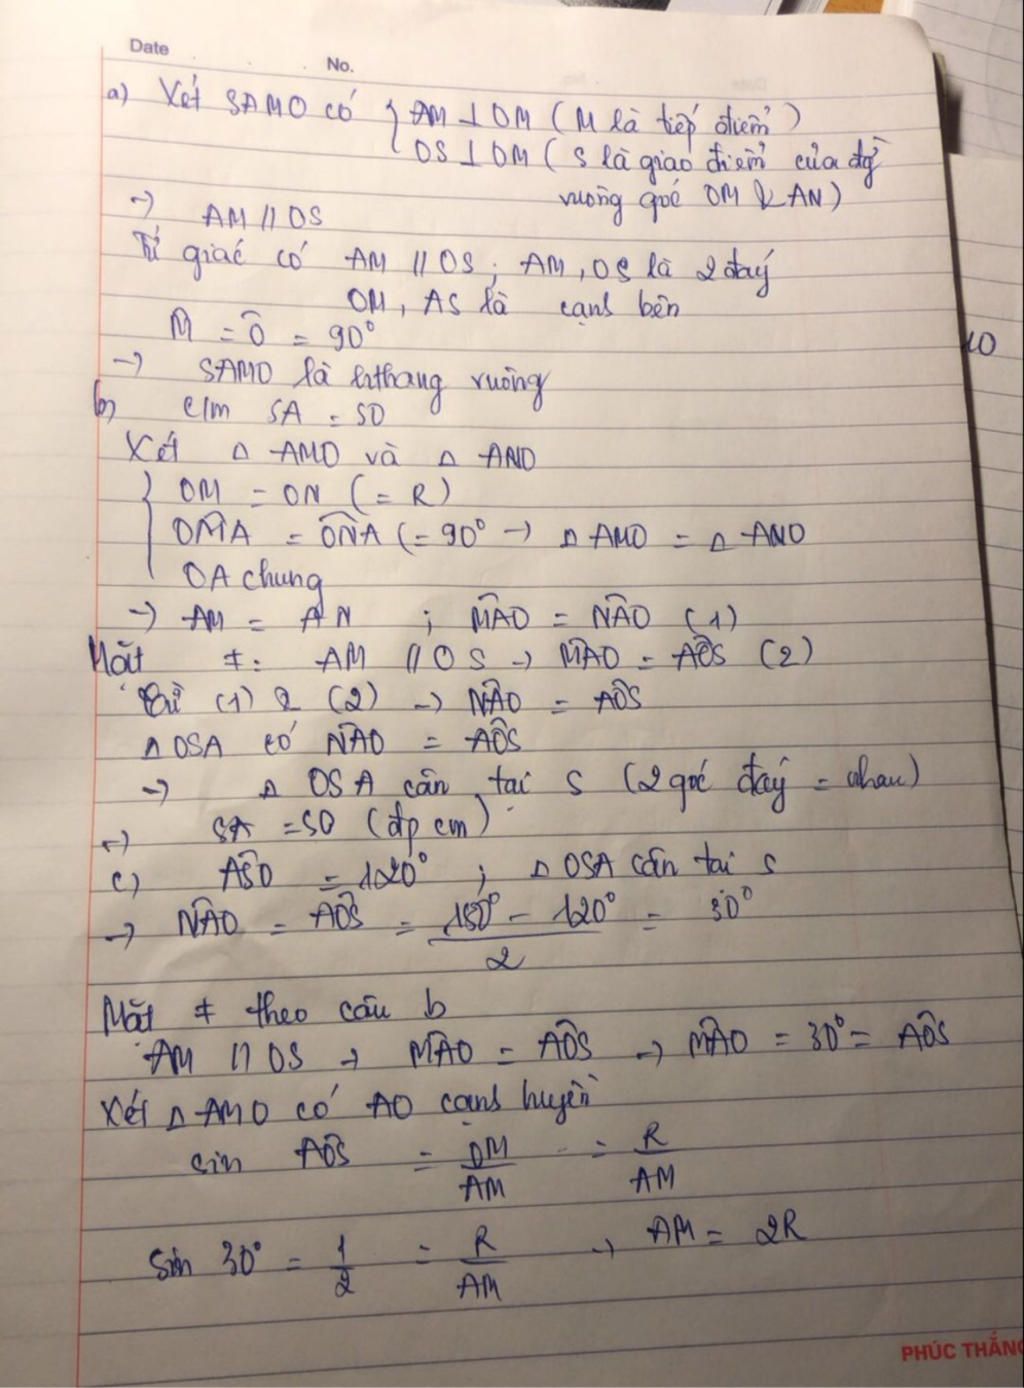 Date
No.
a) Xét SAMO có { AM ⊥ OM (M là tiếp điểm)
OS ⊥ OM (S là giao điểm của đg
vuông góc OM & AN)
→ AM // OS
Tứ giác có AM // OS; AM, OS là 2 đáy
OM, AS là cạnh bên
M̂ = Ô = 90°
→ SAMO là hthang vuông
b) c/m SA = SO
Xét △ AMO và △ ANO
OM = ON (= R)
OM̂A = ON̂A (= 90° → △ AMO = △ ANO
OA chung
→ AM = AN ; MÂO = NÂO (1)
Mặt ≠: AM // OS → MÂO = AÔS (2)
Từ (1) & (2) → NÂO = AÔS
△ OSA có NÂO = AÔS
→ △ OSA cân tại S (2 góc đáy = nhau)
→ SA = SO (đp cm)
c) AŜO = 120° ; △ OSA cân tại S
→ NÂO = AÔS = (180° - 120°)/2 = 30°
Mặt ≠ theo câu b
AM // OS → MÂO = AÔS → MÂO = 30° = AÔS
Xét △ AMO có AO cạnh huyền
sin AÔS = OM/AM = R/AM
Sin 30° = 1/2 = R/AM → AM = 2R
10
PHÚC THẮNG